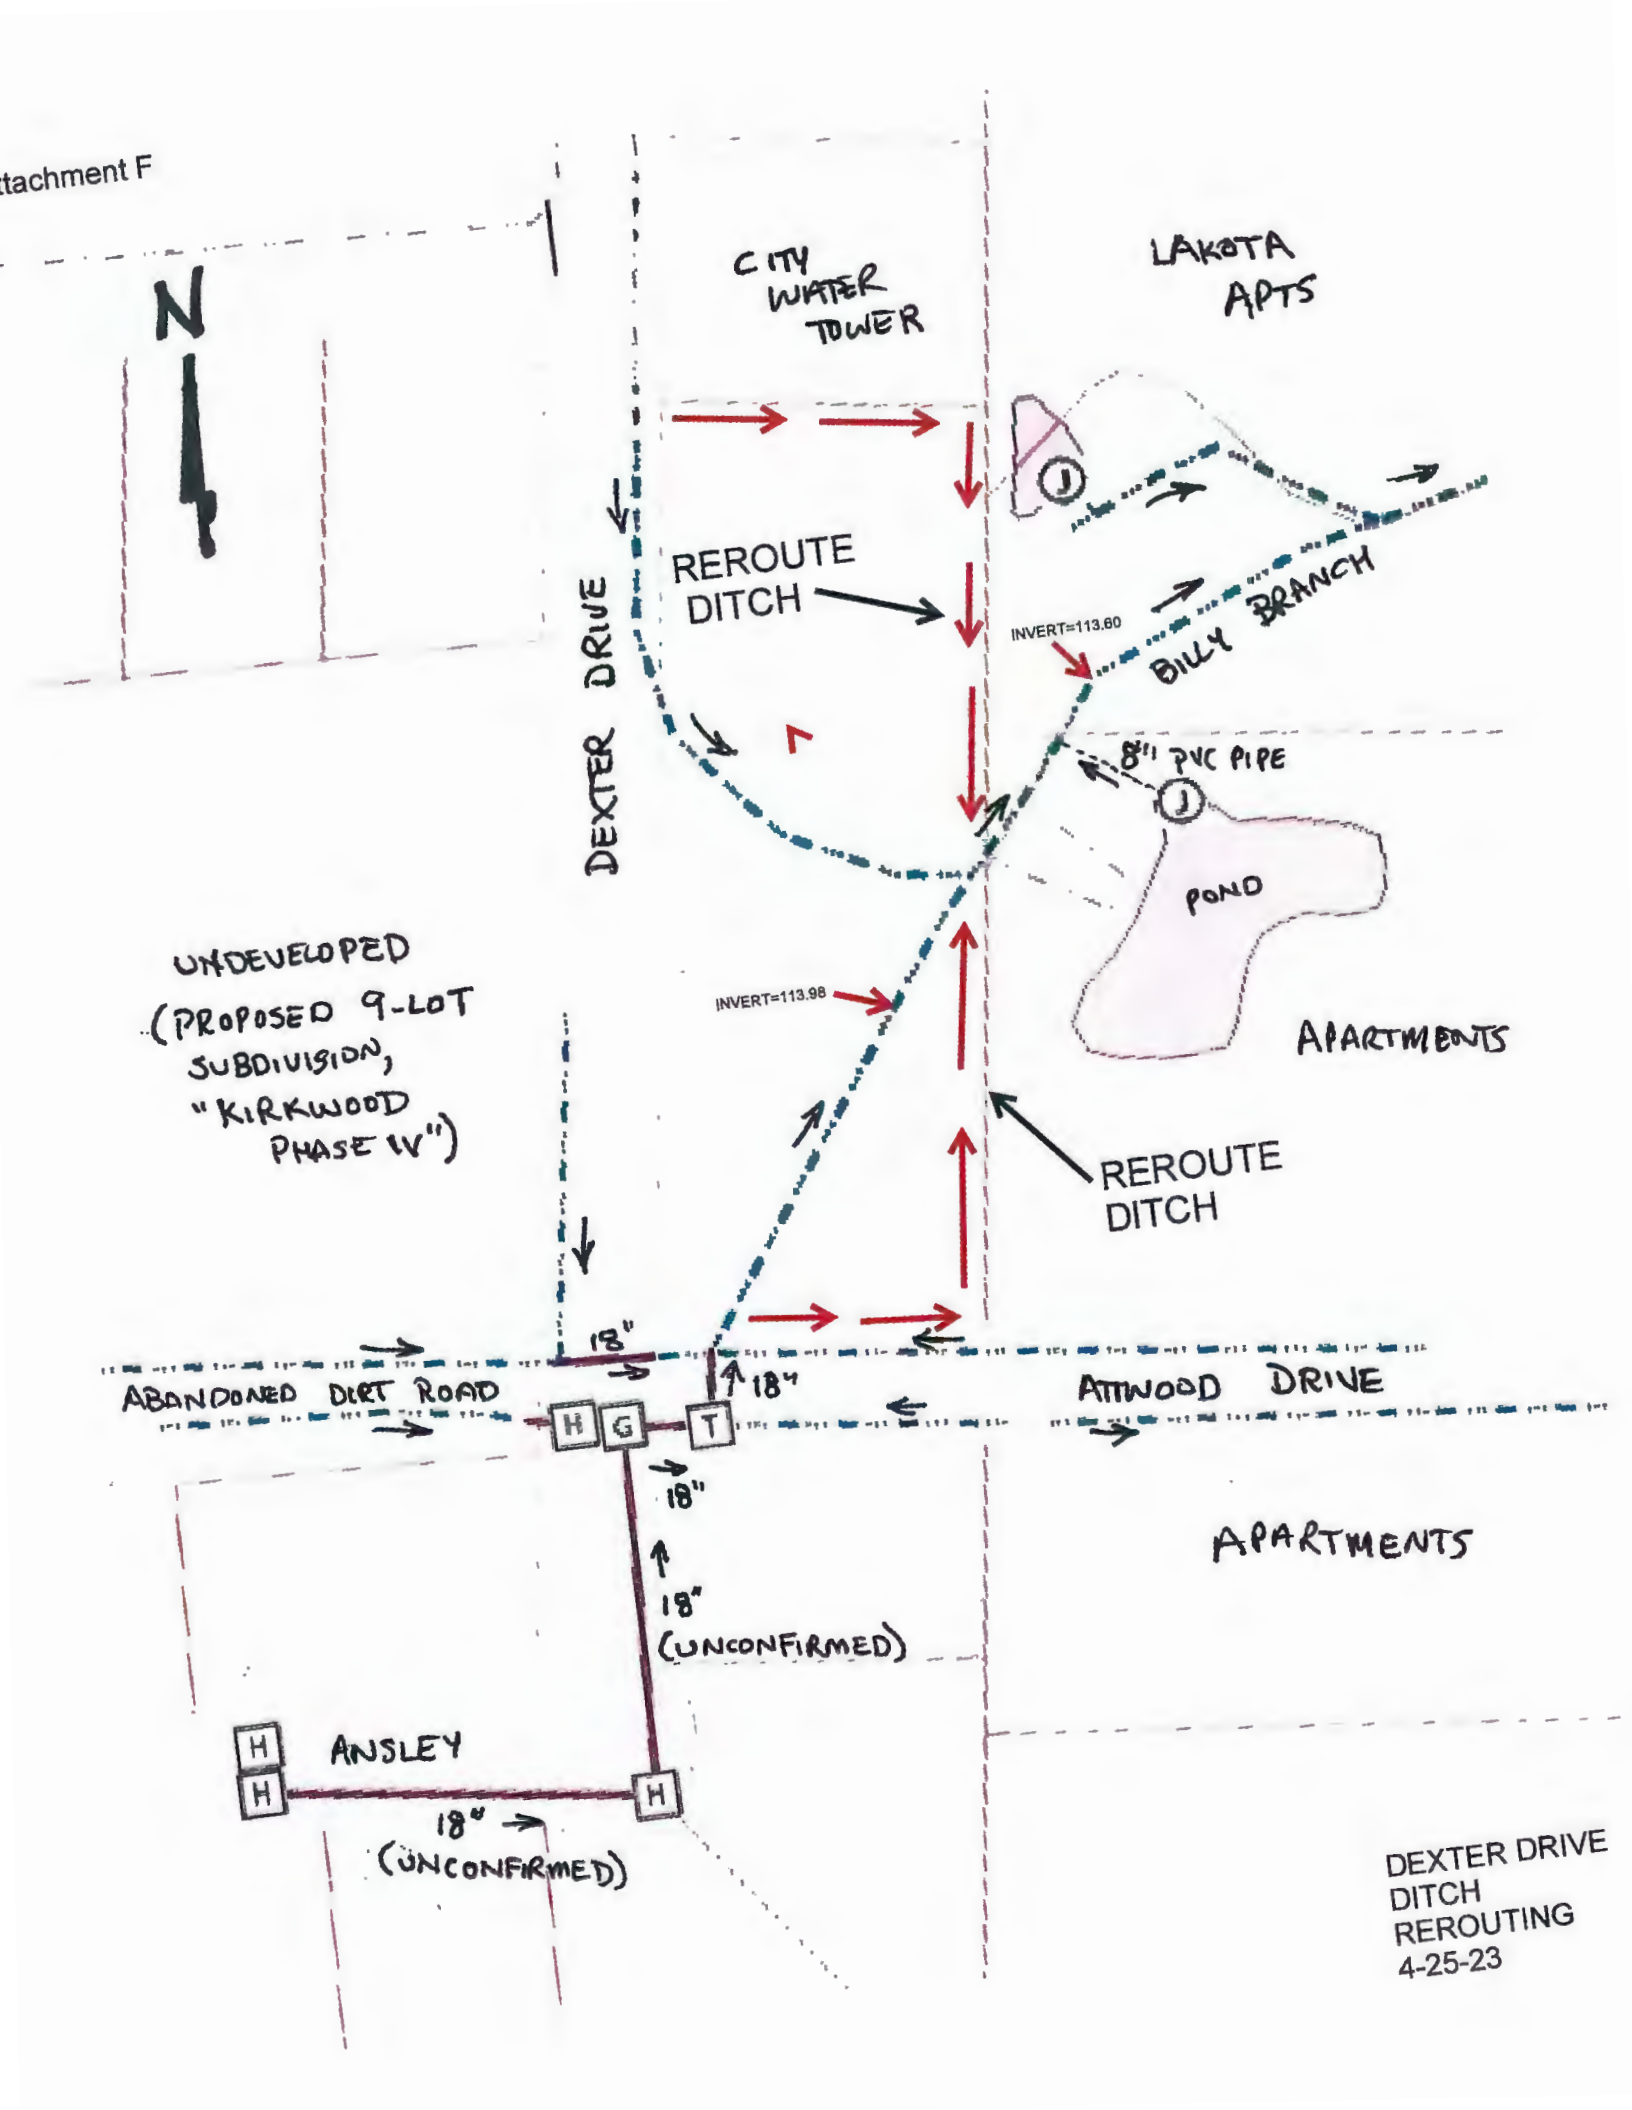 ttachment F
N
CITY
WATER
TOWER
LAKOTA
APTS
J
REROUTE
DITCH
INVERT=113.60
BILLY BRANCH
DEXTER DRIVE
8" PVC PIPE
J
POND
UNDEVELOPED
(PROPOSED 9-LOT
SUBDIVISION,
"KIRKWOOD
PHASE IV")
INVERT=113.98
APARTMENTS
REROUTE
DITCH
18"
ABANDONED DIRT ROAD
18"
ATTWOOD DRIVE
H G T
18"
APARTMENTS
18"
(UNCONFIRMED)
H
H
ANSLEY
H
18"
(UNCONFIRMED)
DEXTER DRIVE
DITCH
REROUTING
4-25-23